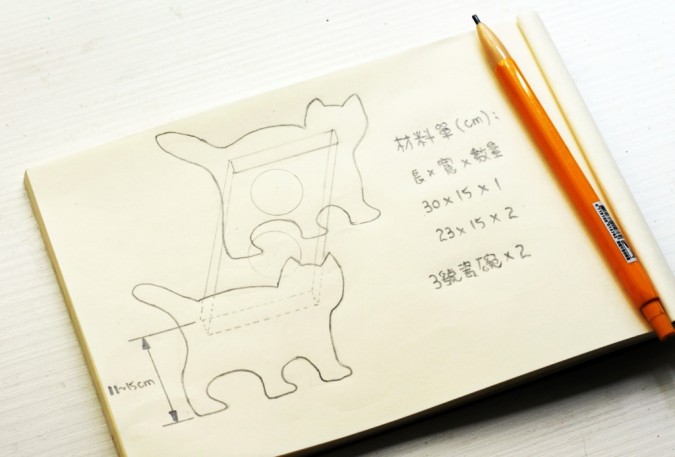 材料單(cm):
長×寬×數量
30×15×1
23×15×2
3號書碗×2
11~15cm